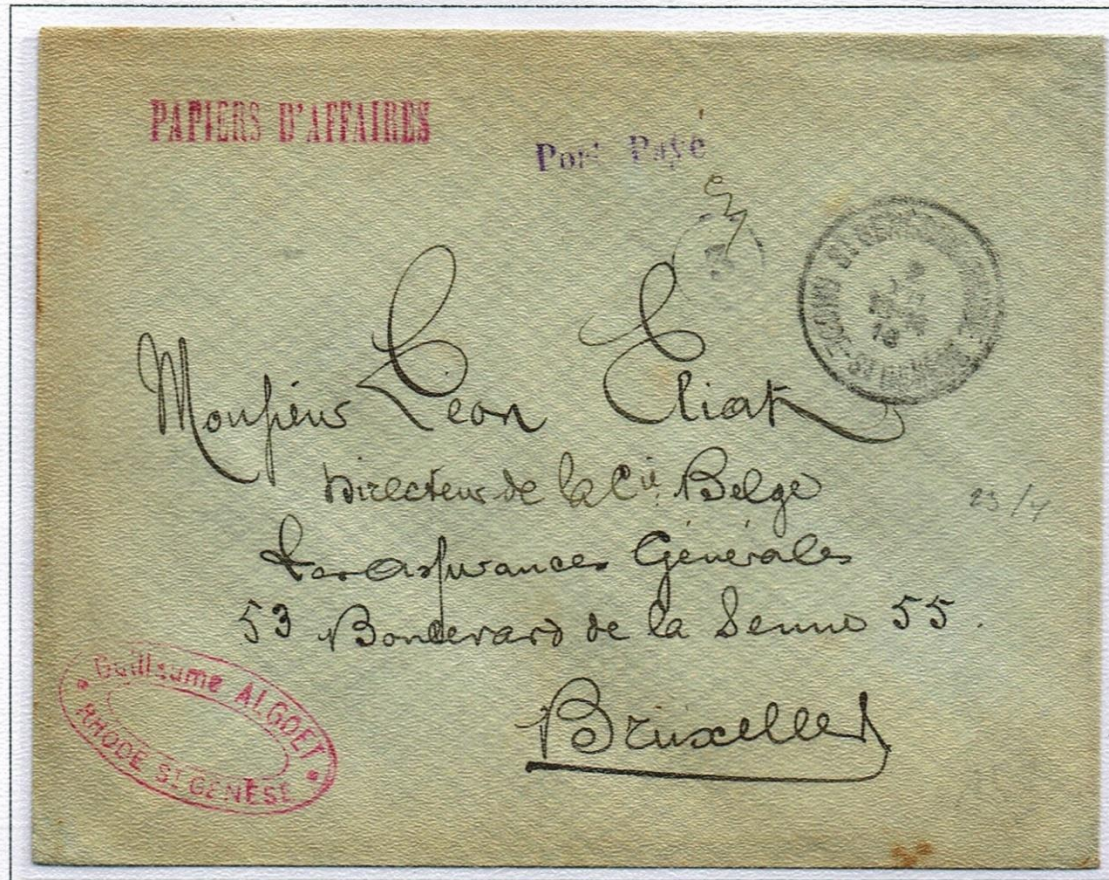 PAPIERS D'AFFAIRES
Port Payé
RHODE-ST GENESE
Monsieur Léon Eliat
Directeur de la Cie Belge
Les Assurances Générales
23/4
53 Boulevard de la Senne 55.
Bruxelles
Guillaume ALGOET
RHODE ST GENESE